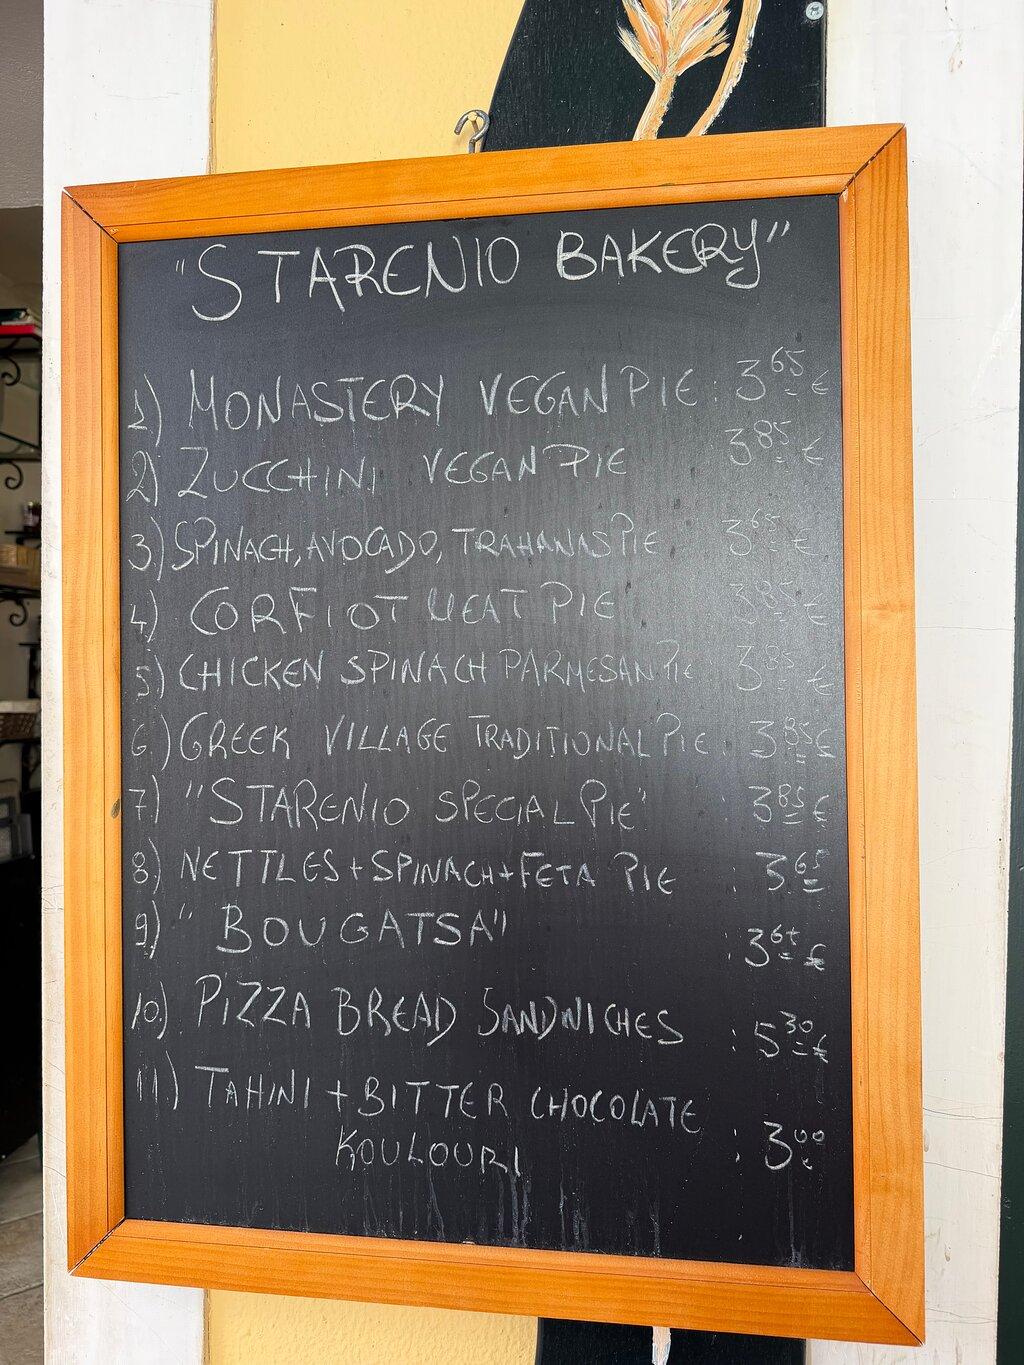 "STARENIO BAKERY"
1) MONASTERY VEGAN PIE : 3 65 €
2) ZUCCHINI VEGAN PIE 3 85 €
3) SPINACH, AVOCADO, TRAHANAS PIE 3 65 €
4) CORFIOT MEAT PIE 3 85 €
5) CHICKEN SPINACH PARMESAN PIE 3 85 €
6) GREEK VILLAGE TRADITIONAL PIE : 3 85 €
7) "STARENIO SPECIAL PIE" : 3 85 €
8) NETTLES + SPINACH + FETA PIE : 3 65
9) "BOUGATSA" : 3 €
10) PIZZA BREAD SANDWICHES : 5 30 €
11) TAHINI + BITTER CHOCOLATE
KOULOURI : 3 00 €